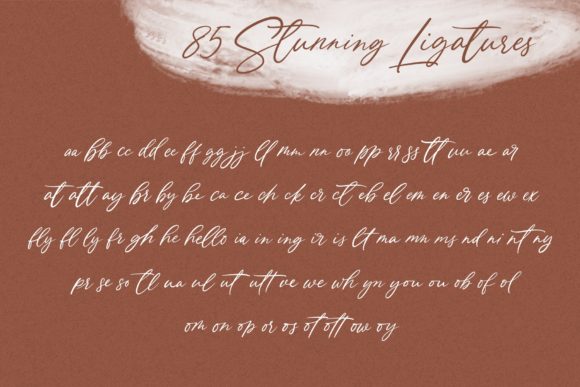 85 Stunning Ligatures
aa bb cc dd ee ff gg jj ll mm nn oo pp rr ss tt uu ae ar
at att ay br by be ca ce ch ck cr ct eb el em en er es ew ex
fly fl ly fr gh he hello ia in ing ir is lt ma mn ms nd ni nt ny
pr se so tl ua ul ut utt ve we wh yn you ou ob of ol
om on op or os ot ott ow oy